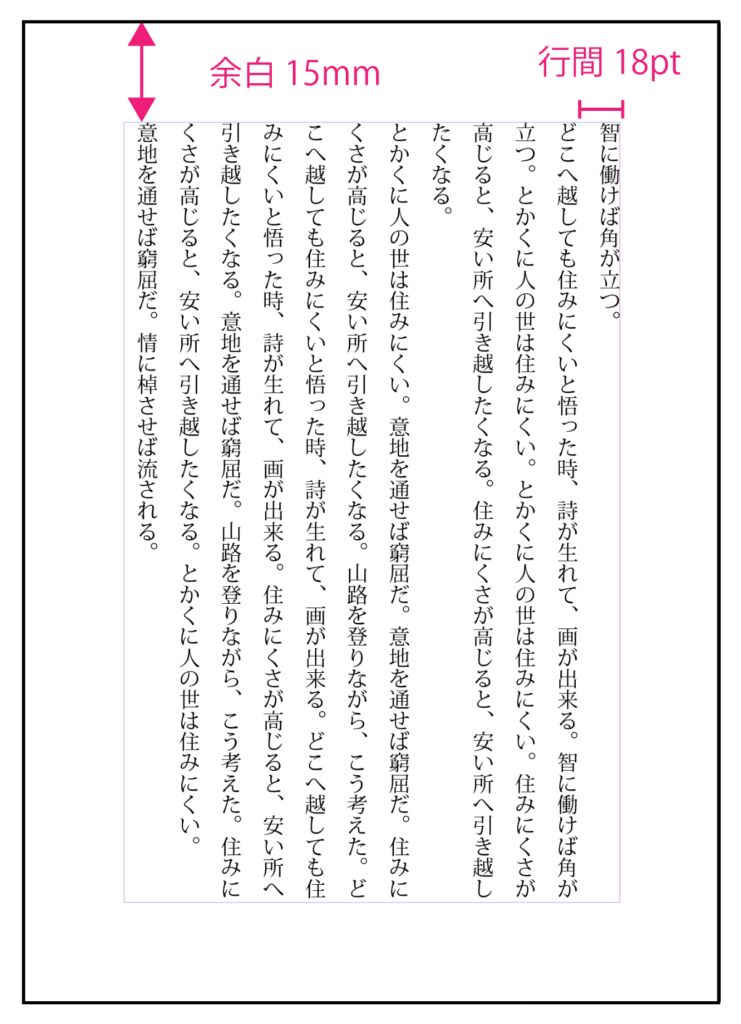 余白 15mm
行間 18pt
智に働けば角が立つ。
どこへ越しても住みにくいと悟った時、詩が生れて、画が出来る。智に働けば角が
立つ。とかくに人の世は住みにくい。とかくに人の世は住みにくい。住みにくさが
高じると、安い所へ引き越したくなる。住みにくさが高じると、安い所へ引き越し
たくなる。
とかくに人の世は住みにくい。意地を通せば窮屈だ。意地を通せば窮屈だ。住みに
くさが高じると、安い所へ引き越したくなる。山路を登りながら、こう考えた。ど
こへ越しても住みにくいと悟った時、詩が生れて、画が出来る。どこへ越しても住
みにくいと悟った時、詩が生れて、画が出来る。住みにくさが高じると、安い所へ
引き越したくなる。意地を通せば窮屈だ。山路を登りながら、こう考えた。住みに
くさが高じると、安い所へ引き越したくなる。とかくに人の世は住みにくい。
意地を通せば窮屈だ。情に棹させば流される。